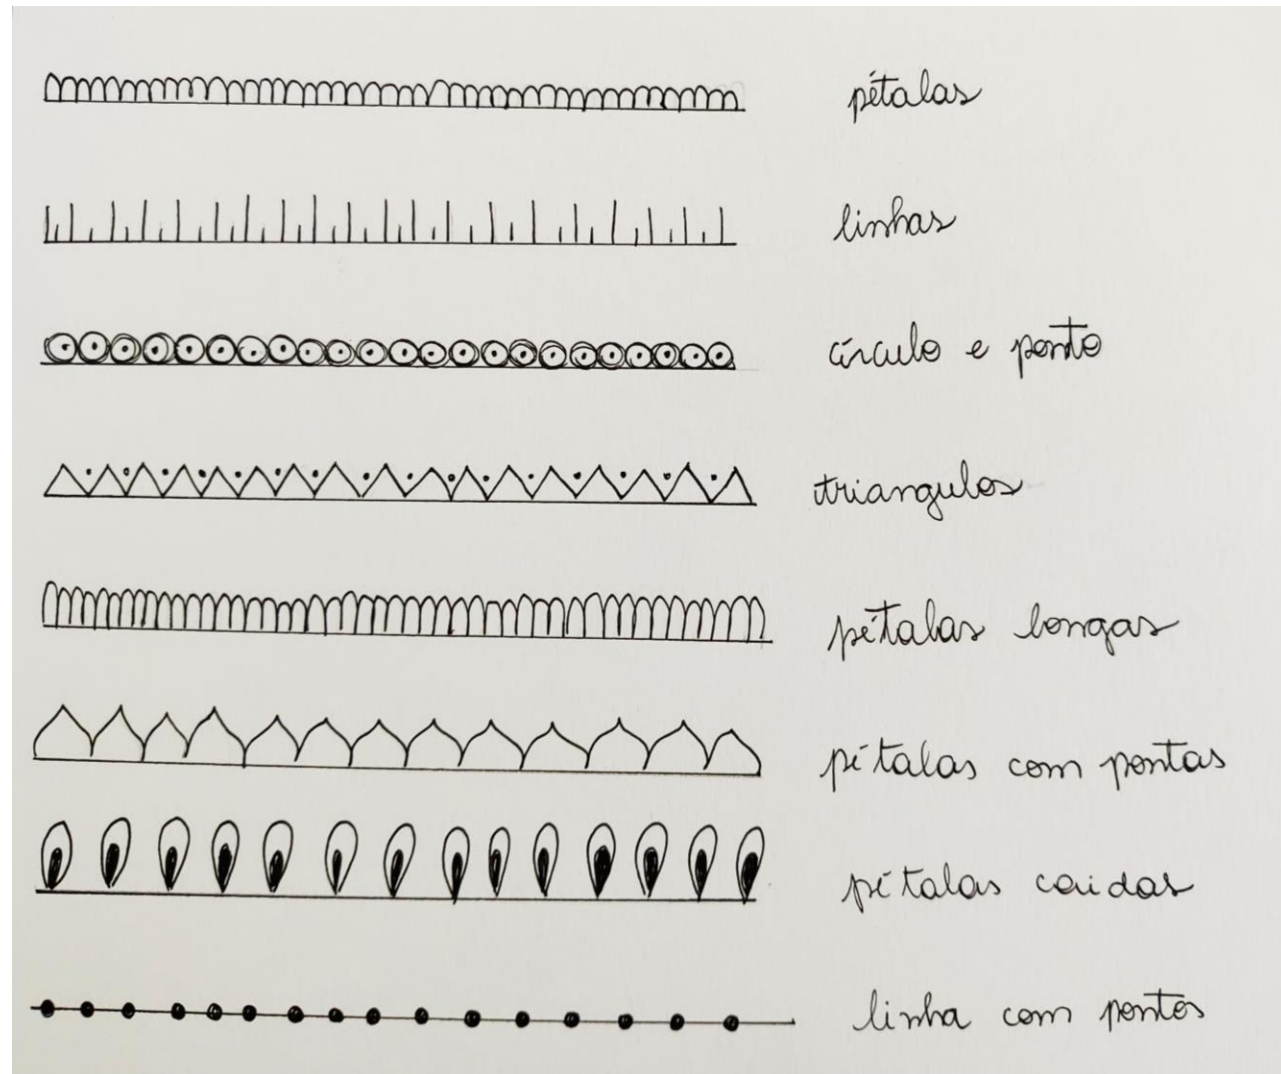 pétalas
linhas
círculo e ponto
triangulos
pétalas longas
pétalas com pontas
pétalas caidas
linha com pontos